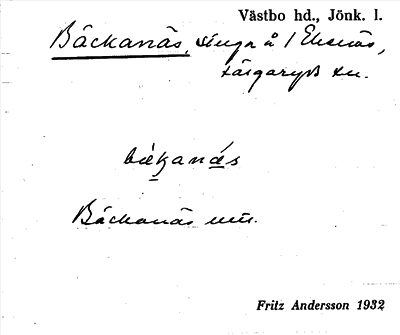 Västbo hd., Jönk. l.
Bäckanäs, stuga å 1 Ekenäs,
Färgaryds sn.
bækanäs
Bäckanäs
Fritz Andersson 1932